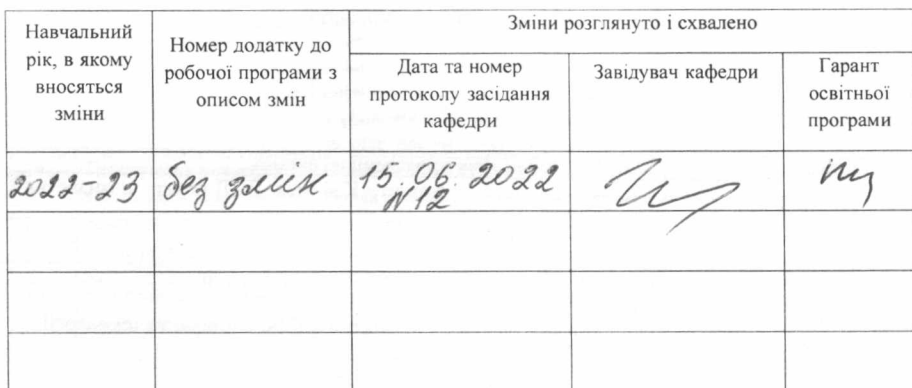 Навчальний
рік, в якому
вносяться
зміни
Номер додатку до
робочої програми з
описом змін
Зміни розглянуто і схвалено
Дата та номер
протоколу засідання
кафедри
Завідувач кафедри
Гарант
освітньої
програми
2022-23
без змін
15.06.2022
№12